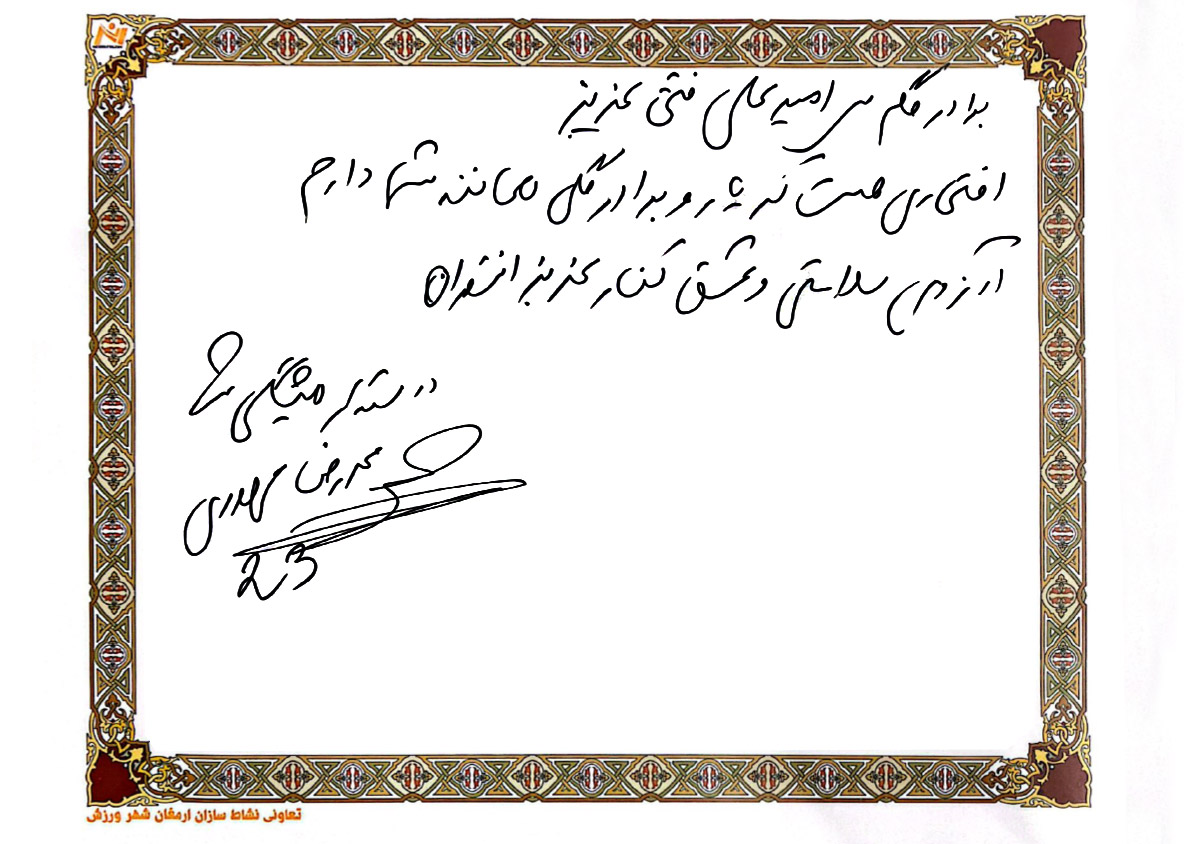 برادر گلم امیرعلی فتحی عزیز
افتخاری هست که یار و برادر گلی مانند شما دارم
آرزوی سلامتی و عشق کنار عزیزانتون
دوستدار همیشگی
محمدرضا مهدوی
23
تعاونی نشاط سازان ارمغان شهر ورزش